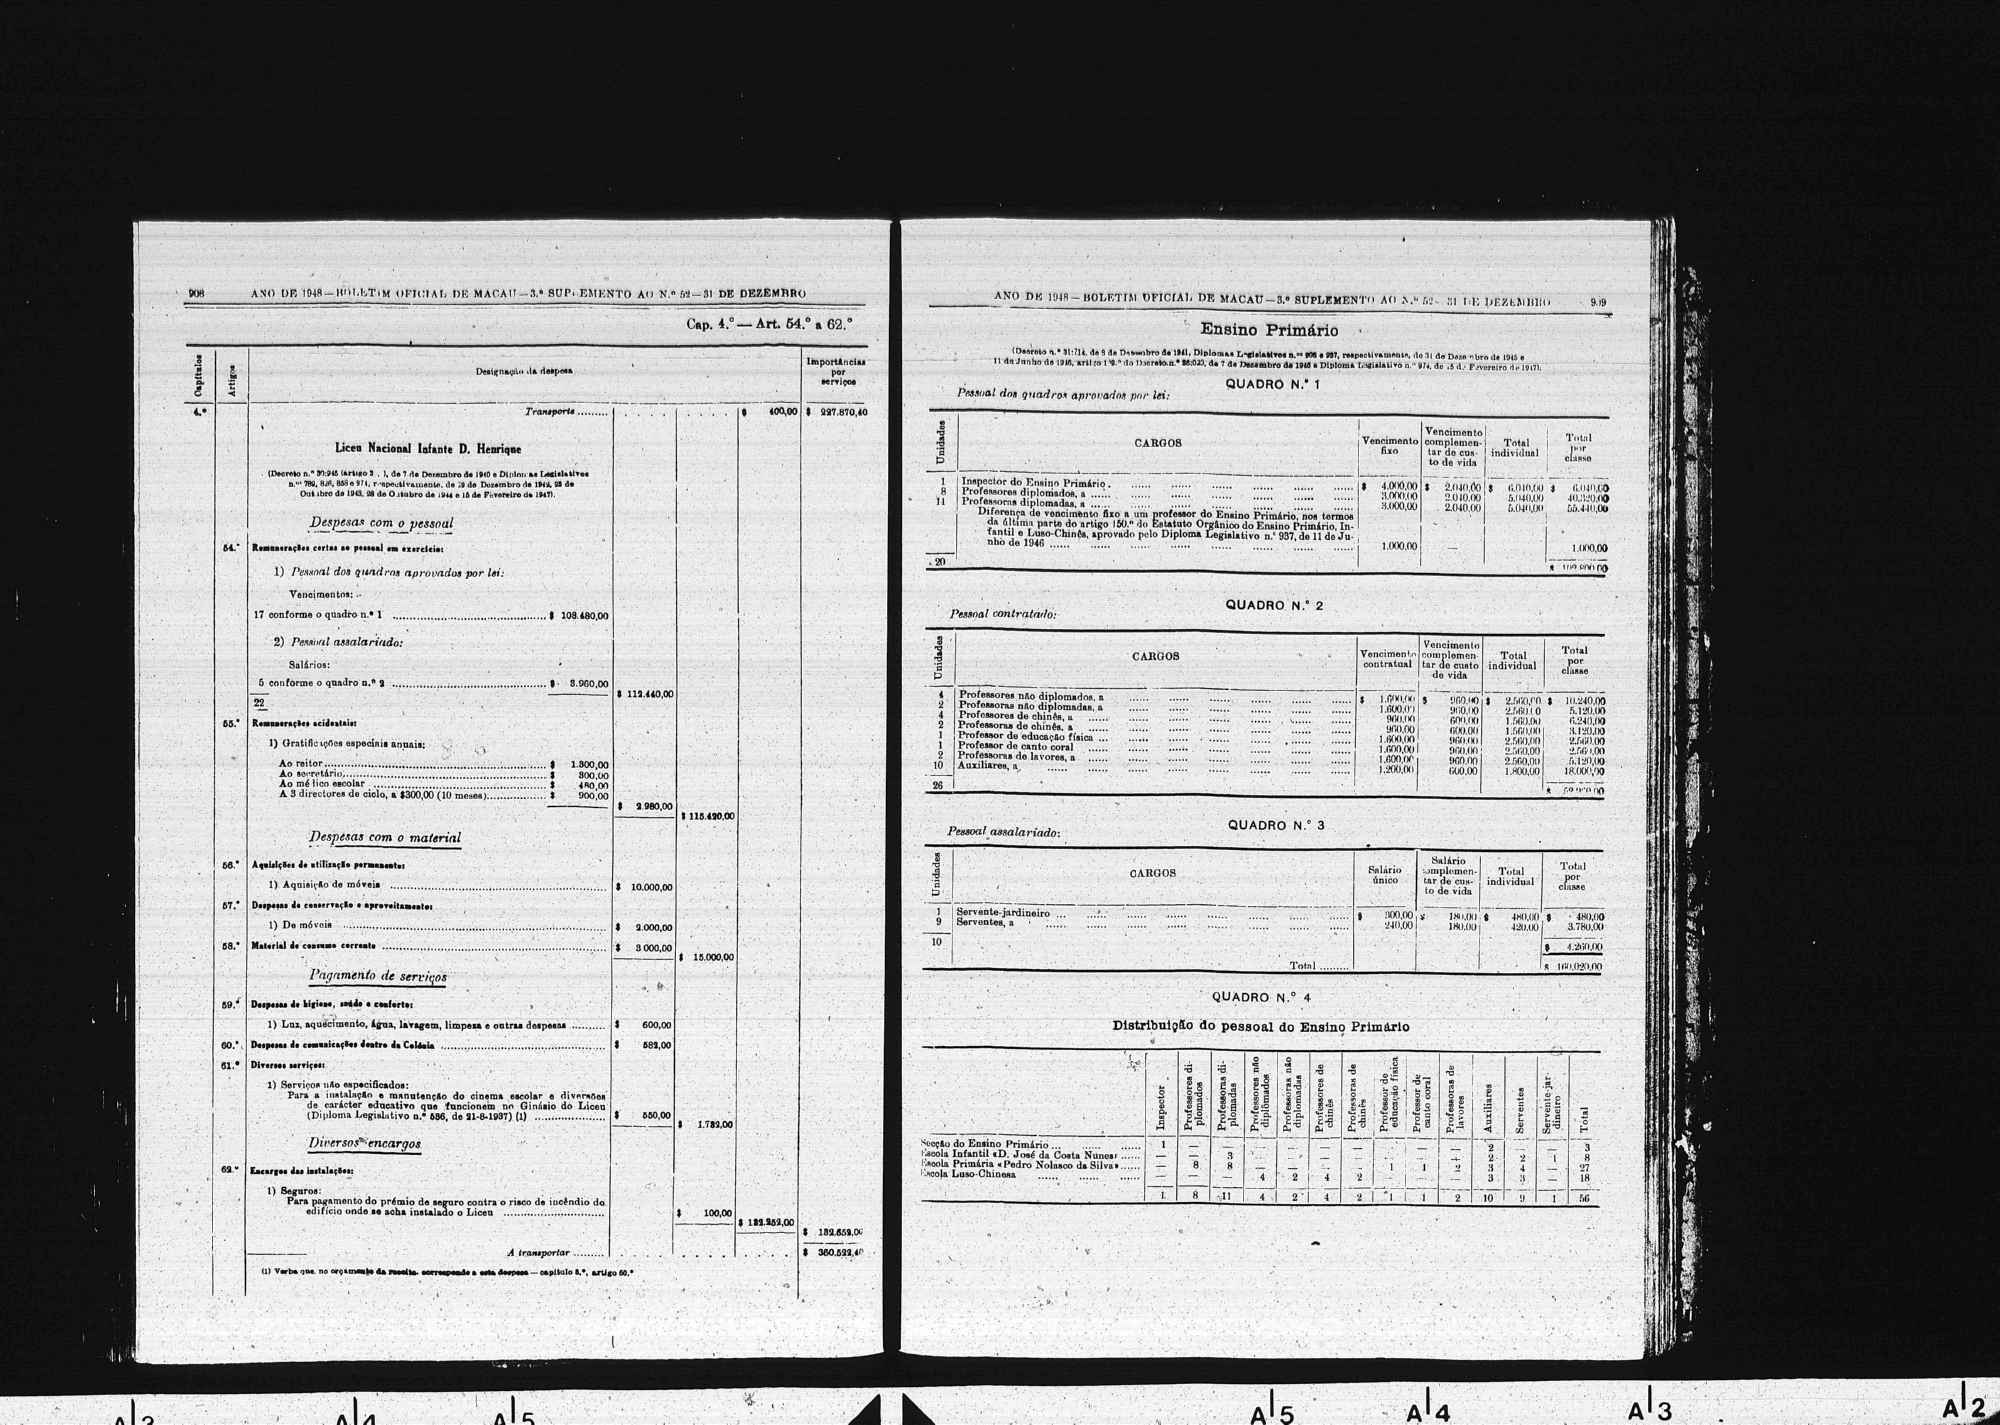 908 ANO DE 1948—BOLETIM OFICIAL DE MACAU—3.º SUPLEMENTO AO N.º 52—31 DE DEZEMBRO
Cap. 4.º — Art. 54.º a 62.º
Capítulos Artigos Designação da despesa Importâncias por serviços
4.º Transporte ......... $ 400,00 $ 227.870,40
Liceu Nacional Infante D. Henrique
Despesas com o pessoal
54.º Remunerações certas ao pessoal em exercício:
1) Pessoal dos quadros aprovados por lei:
Vencimentos:
17 conforme o quadro n.º 1 ......... $ 108.480,00
2) Pessoal assalariado:
Salários:
5 conforme o quadro n.º 2 ......... $ 3.960,00
$ 112.440,00
22
55.º Remunerações acidentais:
1) Gratificações especiais anuais:
Ao reitor ......... $ 1.300,00
Ao secretário ......... $ 300,00
Ao médico escolar ......... $ 480,00
A 3 directores de ciclo, a $300,00 (10 meses) ......... $ 900,00
$ 2.980,00
$ 115.420,00
Despesas com o material
56.º Aquisições de utilização permanente:
1) Aquisição de móveis ......... $ 10.000,00
57.º Despesas de conservação e aproveitamento:
1) De móveis ......... $ 2.000,00
58.º Material de consumo corrente ......... $ 3.000,00
$ 15.000,00
Pagamento de serviços
59.º Despesas de higiene, saúde e conforto:
1) Luz, aquecimento, água, lavagem, limpeza e outras despesas ......... $ 600,00
60.º Despesas de comunicações dentro da Colónia ......... $ 582,00
61.º Diversos serviços:
1) Serviços não especificados:
Para a instalação e manutenção do cinema escolar e diversões
de carácter educativo que funcionem no Ginásio do Liceu
(Diploma Legislativo n.º 586, de 21-8-1937) (1) ......... $ 550,00
$ 1.732,00
Diversos encargos
62.º Encargos das instalações:
1) Seguros:
Para pagamento do prémio de seguro contra o risco de incêndio do
edifício onde se acha instalado o Liceu ......... $ 100,00
$ 132.252,00
$ 132.652,00
A transportar ......... $ 360.522,40
(1) Verba que, no orçamento da receita, corresponde a esta despesa — capítulo 8.º, artigo 60.º
ANO DE 1948—BOLETIM OFICIAL DE MACAU—3.º SUPLEMENTO AO N.º 52—31 DE DEZEMBRO 909
Ensino Primário
QUADRO N.º 1
Pessoal dos quadros aprovados por lei:
Unidades CARGOS Vencimento fixo Vencimento complementar de custo de vida Total individual Total por classe
1 Inspector do Ensino Primário ...... $ 4.000,00 $ 2.040,00 $ 6.040,00 $ 6.040,00
8 Professores diplomados, a ...... 3.000,00 2.040,00 5.040,00 40.320,00
11 Professoras diplomadas, a ...... 3.000,00 2.040,00 5.040,00 55.440,00
Diferença de vencimento fixo a um professor do Ensino Primário, nos termos
da última parte do artigo 150.º do Estatuto Orgânico do Ensino Primário, In-
fantil e Luso-Chinês, aprovado pelo Diploma Legislativo n.º 937, de 11 de Ju-
nho de 1946 ...... 1.000,00 — 1.000,00
20
QUADRO N.º 2
Pessoal contratado:
Unidades CARGOS Vencimento contratual Vencimento complementar de custo de vida Total individual Total por classe
4 Professores não diplomados, a ...... $ 1.600,00 $ 960,00 $ 2.560,00 $ 10.240,00
2 Professoras não diplomadas, a ...... 1.600,00 960,00 2.560,00 5.120,00
4 Professores de chinês, a ...... 960,00 600,00 1.560,00 6.240,00
2 Professoras de chinês, a ...... 960,00 600,00 1.560,00 3.120,00
1 Professor de educação física ... 1.600,00 960,00 2.560,00 2.560,00
1 Professor de canto coral ...... 1.600,00 960,00 2.560,00 2.560,00
2 Professoras de lavores, a ...... 1.600,00 960,00 2.560,00 5.120,00
10 Auxiliares, a ...... 1.200,00 600,00 1.800,00 18.000,00
26
QUADRO N.º 3
Pessoal assalariado:
Unidades CARGOS Salário único Salário complementar de custo de vida Total individual Total por classe
1 Servente-jardineiro ... $ 300,00 $ 180,00 $ 480,00 $ 480,00
9 Serventes, a ...... 240,00 180,00 420,00 3.780,00
10 $ 4.260,00
Total ......... $ 160.020,00
QUADRO N.º 4
Distribuição do pessoal do Ensino Primário
Inspector Professores diplomados Professoras diplomadas Professores não diplomados Professoras não diplomadas Professores de chinês Professoras de chinês Professor de educação física Professor de canto coral Professoras de lavores Auxiliares Serventes Servente-jardineiro Total
Secção do Ensino Primário ... 1 — — — — — — — — — 2 — — 3
Escola Infantil «D. José da Costa Nunes» ...... — — 3 — — — — — — — 2 2 1 8
Escola Primária «Pedro Nolasco da Silva» ...... — 8 8 — — — — 1 1 2 3 4 — 27
Escola Luso-Chinesa ...... — — — 4 2 4 2 — — — 3 3 — 18
1 8 11 4 2 4 2 1 1 2 10 9 1 56
A 3 A 4 A 5 A 5 A 4 A 3 A 2